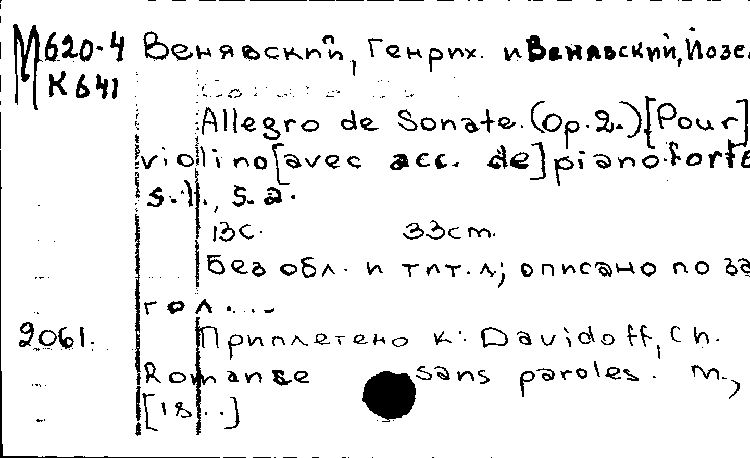 М620-4 Венявский, Генрих. и Венявский, Йозе
К641
Allegro de Sonate. (Op. 2.) [Pour]
violino [avec acc. de] pianoforte
s.l., s.a.
13с. 33cm.
Без обл. и тит. л; описано по за
гол....
2061. Приплетено к: Davidoff, Ch.
Romanse sans paroles. M.,
[18..]